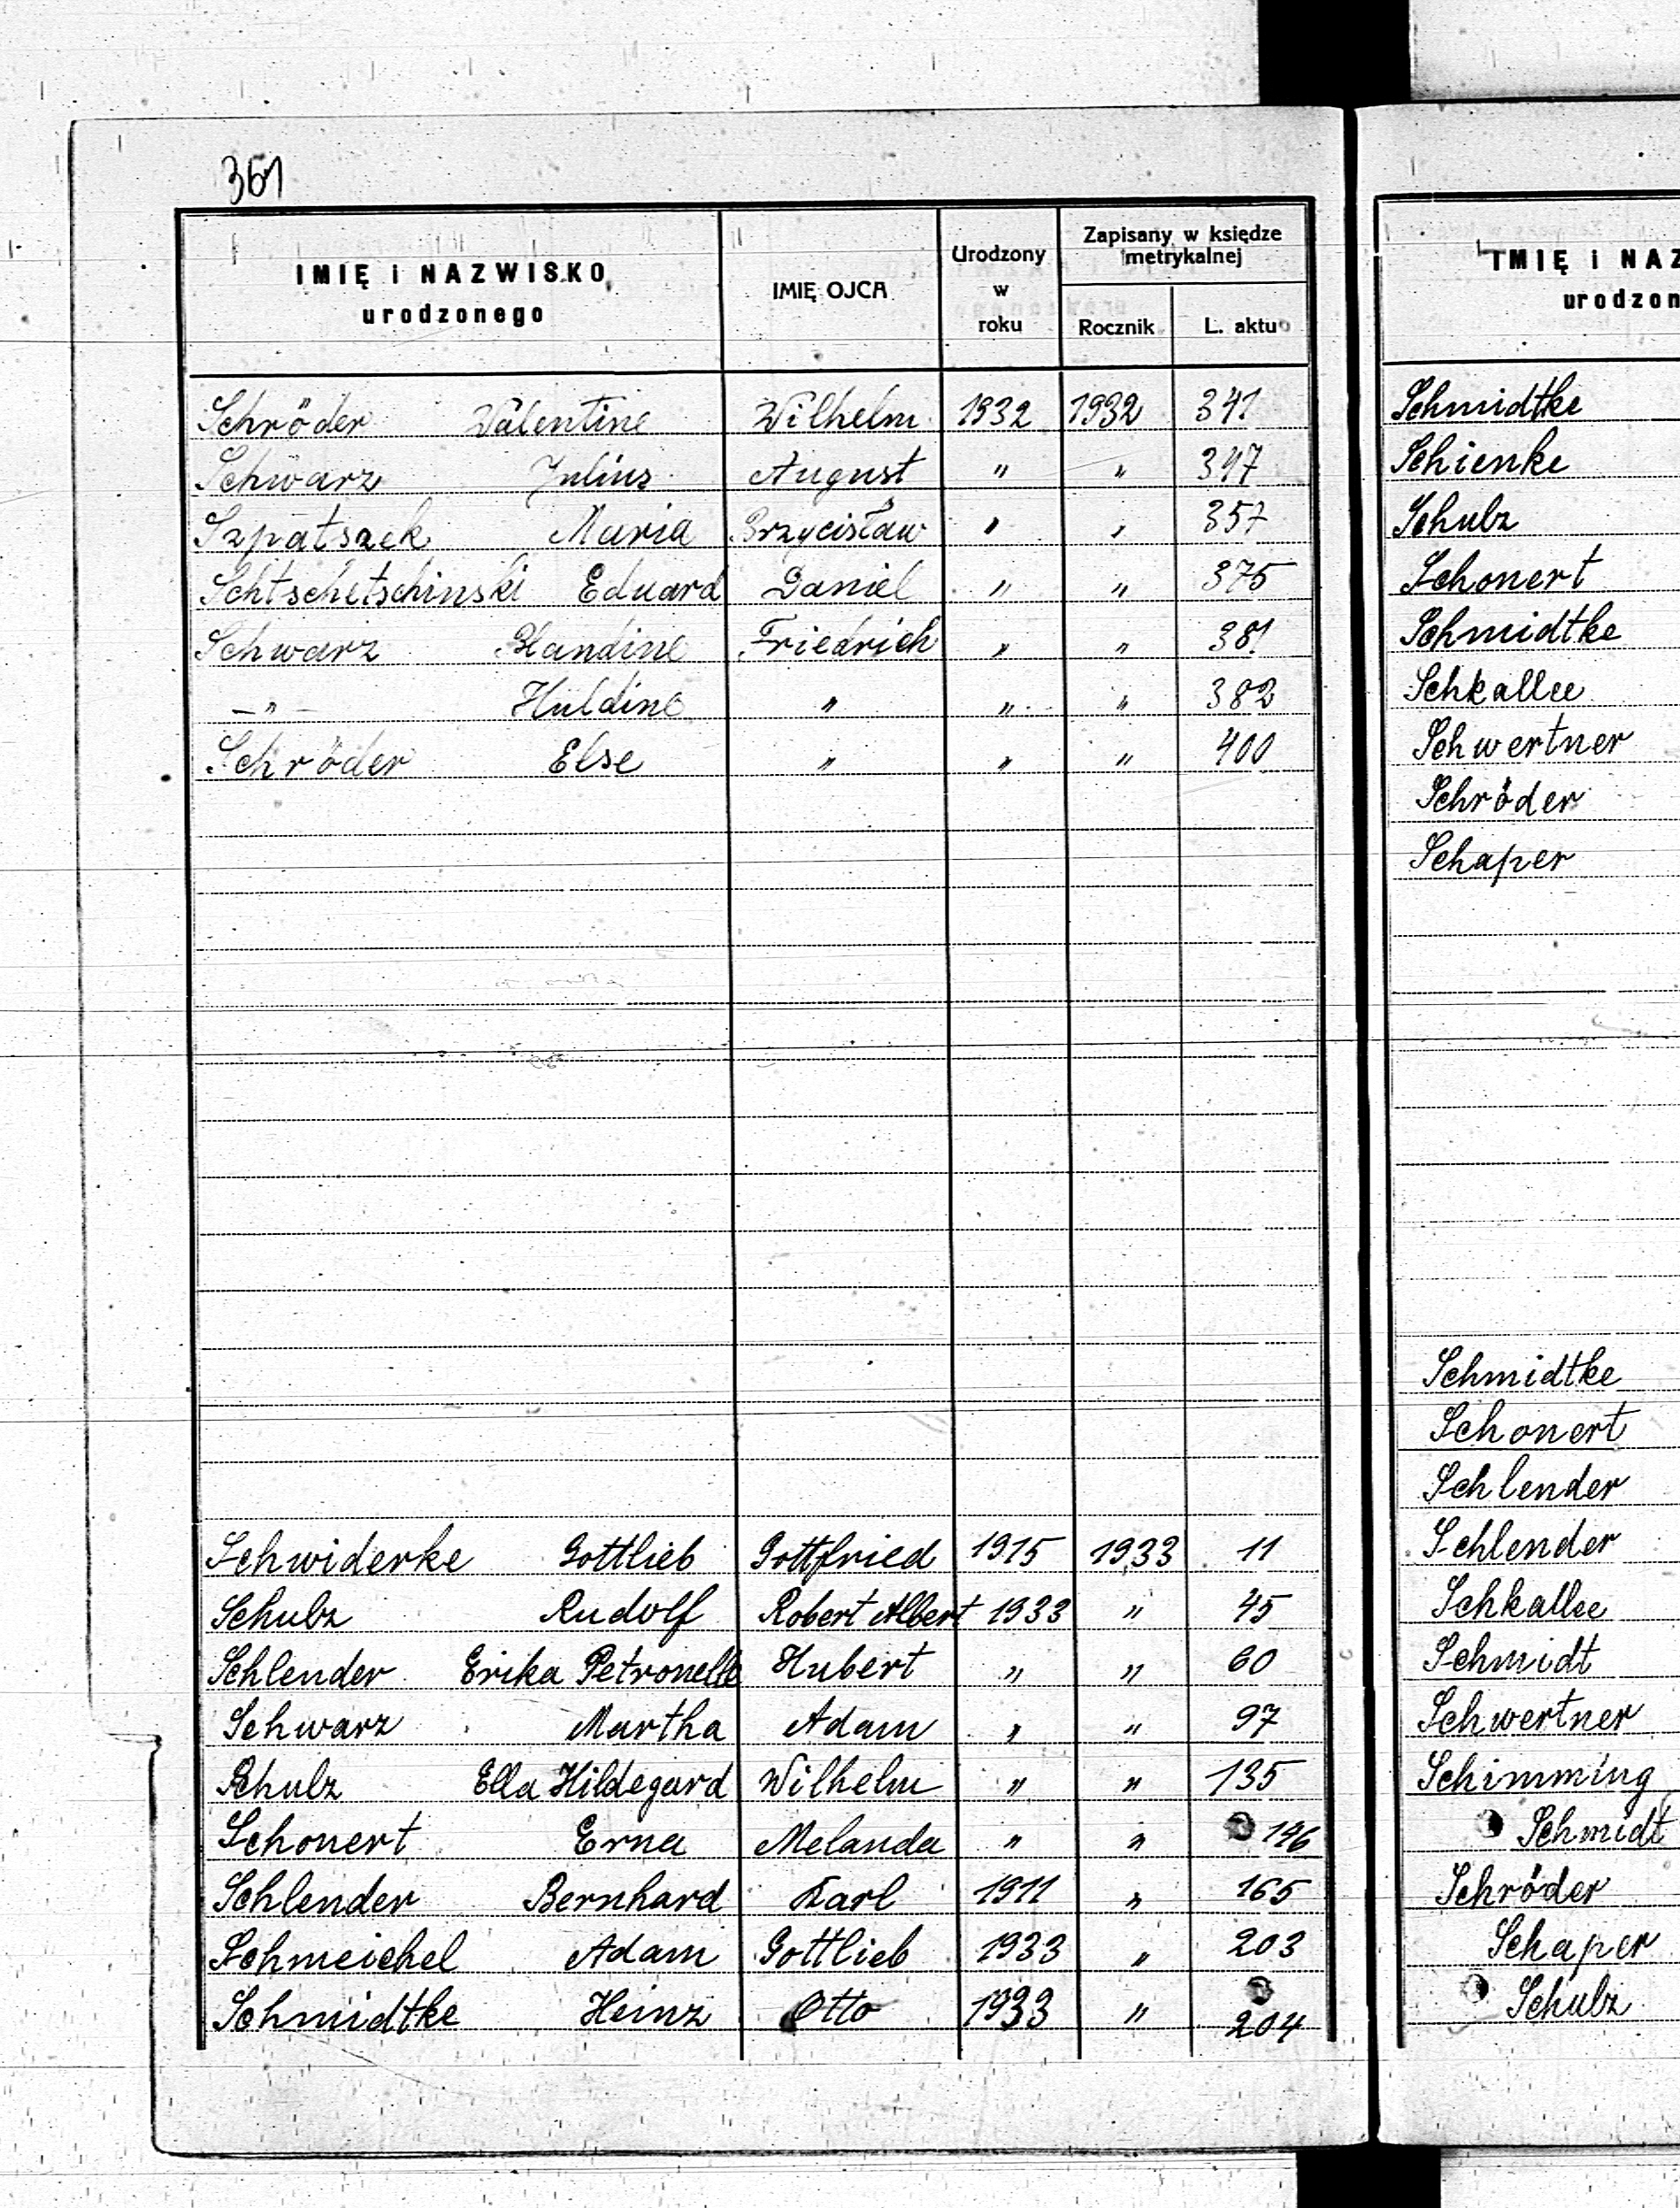 361
IMIĘ i NAZWISKO urodzonego IMIĘ OJCA Urodzony w roku Zapisany w księdze metrykalnej Rocznik L. aktu
Schröder Valentine Wilhelm 1932 1932 341
Schwarz Julius August " " 347
Szpatszek Maria Brzycisław " " 357
Schtschetschinski Eduard Daniel " " 375
Schwarz Blandine Friedrich " " 381
—"— Huldine " " " 382
Schröder Else " " " 400
Schwiderke Gottlieb Gottfried 1915 1933 11
Schulz Rudolf Robert Albert 1933 " 45
Schlender Erika Petronelle Hubert " " 60
Schwarz Martha Adam " " 97
Schulz Ella Hildegard Wilhelm " " 135
Schonert Erna Melanda " " 146
Schlender Bernhard Karl 1911 " 165
Schmeichel Adam Gottlieb 1933 " 203
Schmidtke Heinz Otto 1933 " 204
IMIĘ i NAZ
urodzon
Schmidtke
Schienke
Schulz
Schonert
Schmidtke
Schkallee
Schwertner
Schröder
Schaper
Schmidtke
Schonert
Schlender
Schlender
Schkallee
Schmidt
Schwertner
Schimming
Schmidt
Schröder
Schaper
Schulz